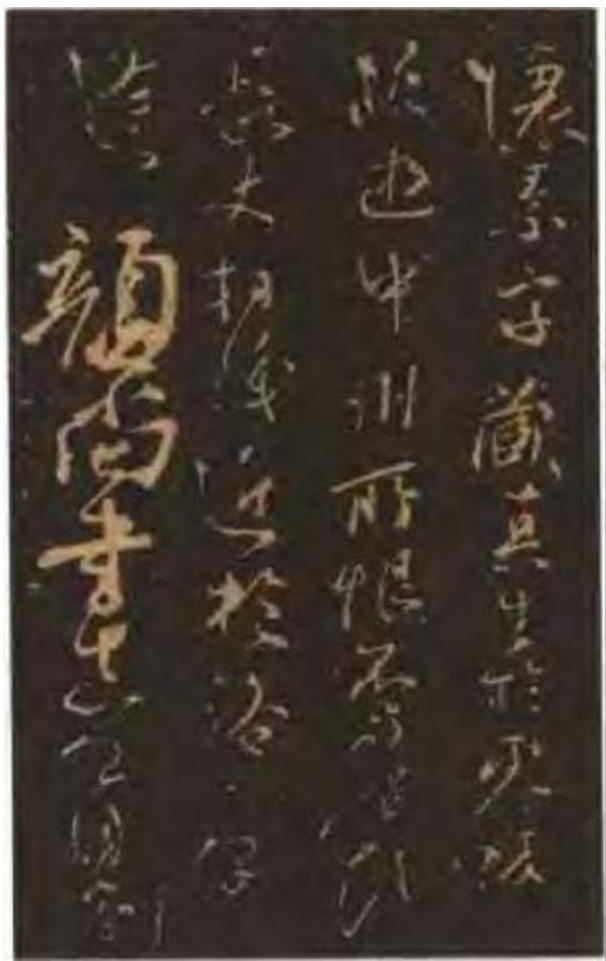 懷素字藏真生於零陵
晚遊中州所恨不與張顛
長史相識近於洛下偶
逢顏尚書真卿自云頗